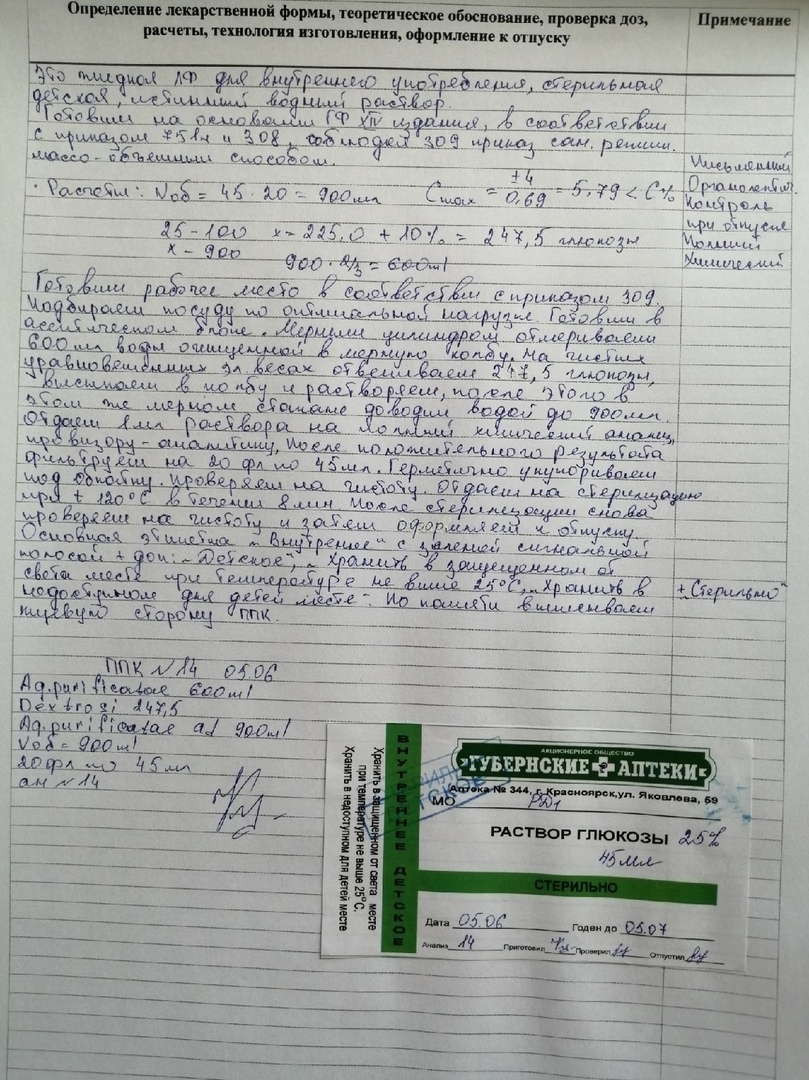 Определение лекарственной формы, теоретическое обоснование, проверка доз,
расчеты, технология изготовления, оформление к отпуску
Примечание
Это жидкая ЛФ для внутреннего употребления, стерильная
детская, истинный водный раствор.
Готовим на основании ГФ XIV издания, в соответствии
с приказом 751н и 308, соблюдая 309 приказ сан. режим.
массо-объемным способом.
Расчеты: Vоб = 45 · 20 = 900мл Cmax = ±4/0,69 = 5,79 < C%
25 - 100 x = 225,0 + 10% = 247,5 глюкозы
x - 900
900 · 2/3 = 600ml
Письменный
Органолептич.
Контроль
при отпуске
Полный
Химический
Готовим рабочее место в соответствии с приказом 309.
Подбираем посуду по оптимальной нагрузке. Готовим в
асептическом блоке. Мерным цилиндром отмериваем
600мл воды очищенной в мерную колбу. На чистых
уравновешенных эл. весах отвешиваем 247,5 глюкозы,
высыпаем в колбу и растворяем, после этого в
этом же мерном стакане доводим водой до 900мл.
Отдаем 8мл раствора на полный химический анализ,
провизору-аналитику. После положительного результата
фильтруем на 20 фл по 45мл. Герметично укупориваем
под обкатку. Проверяем на чистоту. Отдаем на стерилизацию
при t 120°C в течении 8 мин. После стерилизации снова
проверяем на чистоту и затем оформляем к отпуску.
Основная этикетка „Внутреннее“ с зеленой сигнальной
полосой + доп: „Детское“, „Хранить в защищенном от
света месте при температуре не выше 25°C, „Хранить в
недоступном для детей месте“. По памяти выписываем
лицевую сторону ППК.
+ „Стерильно“
ППК №14 05.06
Aq.purificatae 600ml
Dextrosi 247,5
Aq.purificatae ad 900ml
Vоб = 900ml
20фл по 45мл
ан №14
ВНУТРЕННЕЕ ДЕТСКОЕ
Хранить в защищенном от света месте
при температуре не выше 25°C.
Хранить в недоступном для детей месте
АКЦИОНЕРНОЕ ОБЩЕСТВО
ГУБЕРНСКИЕ АПТЕКИ
Аптека № 344, г. Красноярск, ул. Яковлева, 59
МО РД1
РАСТВОР ГЛЮКОЗЫ 25%
45мл
СТЕРИЛЬНО
Дата 05.06 Годен до 05.07
Анализ 14 Приготовил Проверил Отпустил